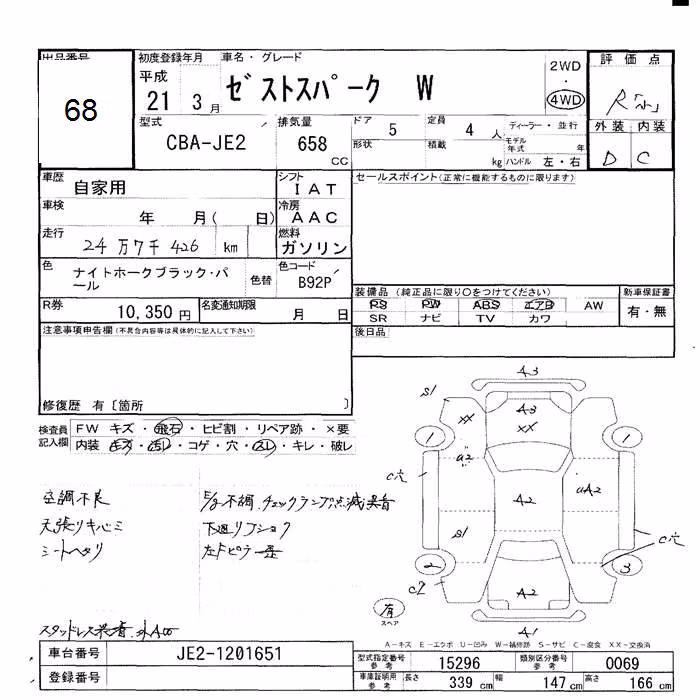 出品番号 初度登録年月 車名・グレード 2WD 評価点
68 平成 21 3月 ゼストスパーク W ・ 4WD R
型式 排気量 ドア 5 定員 4人 ディーラー・並行 外装 内装
CBA-JE2 658 CC 形状 積載 kg モデル年式 年 ハンドル 左・右 D C
車歴 自家用 シフト IAT セールスポイント(正常に機能するものに限ります)
車検 年 月( 日) 冷房 AAC
走行 24万7千426 km 燃料 ガソリン
色 ナイトホークブラック・パール 色替 色コード B92P
装備品 (純正品に限り○をつけてください) 新車保証書
PS PW ABS エアB AW 有・無
SR ナビ TV カワ
R券 10,350円 名変通知期限 月 日
注意事項申告欄(不具合内容等は具体的に記入して下さい) 後日品
修復歴 有〔箇所 〕
検査員記入欄 FW キズ・飛石・ヒビ割・リペア跡・×要
内装 キズ・汚レ・コゲ・穴・スレ・キレ・破レ
A3
A3
S1 XX XX
1 1
a2
C穴 A2 UA2
S1
C穴
2 3
C2 A2
有 スペア
A1
空調不良 E/g不調 チェックランプ点滅
天張リキバミ 下廻リフショク
シートヘタリ 左Fピラー
スタッドレス
A-キズ E-エクボ U-凹み W-補修跡 S-サビ C-腐食 XX-交換済
車台番号 JE2-1201651 型式指定番号 参考 15296 類別区分番号 参考 0069
登録番号 車庫証明用 参考 長さ 339 cm 幅 147 cm 高さ 166 cm